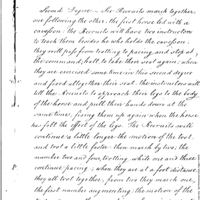 Second Degree - Six Recruits march together,
one following the other. the first horse led with a
cavesson. the Recruits will have two instructors
to teach them besides he who holds the cavesson;
they will pass from trotting to pacing, and stop at
the command, halt, to take their seat again; when
they are exercised some time in this second degree
and fixed altogether their seat, the instructors will
tell the Recruits to approach their legs to the body
of the horse and pull their hands down at the
same time, fixing them up again when the horse
has felt the effect of the legs. The Recruits will
continue a little longer the motion of the trot,
and trot a little faster: then march by two; the
number two and four, trotting, while one and three
continue pacing; when they are at a foot distance
they all trot together; from two they march one,
the first number augmenting the motion of the